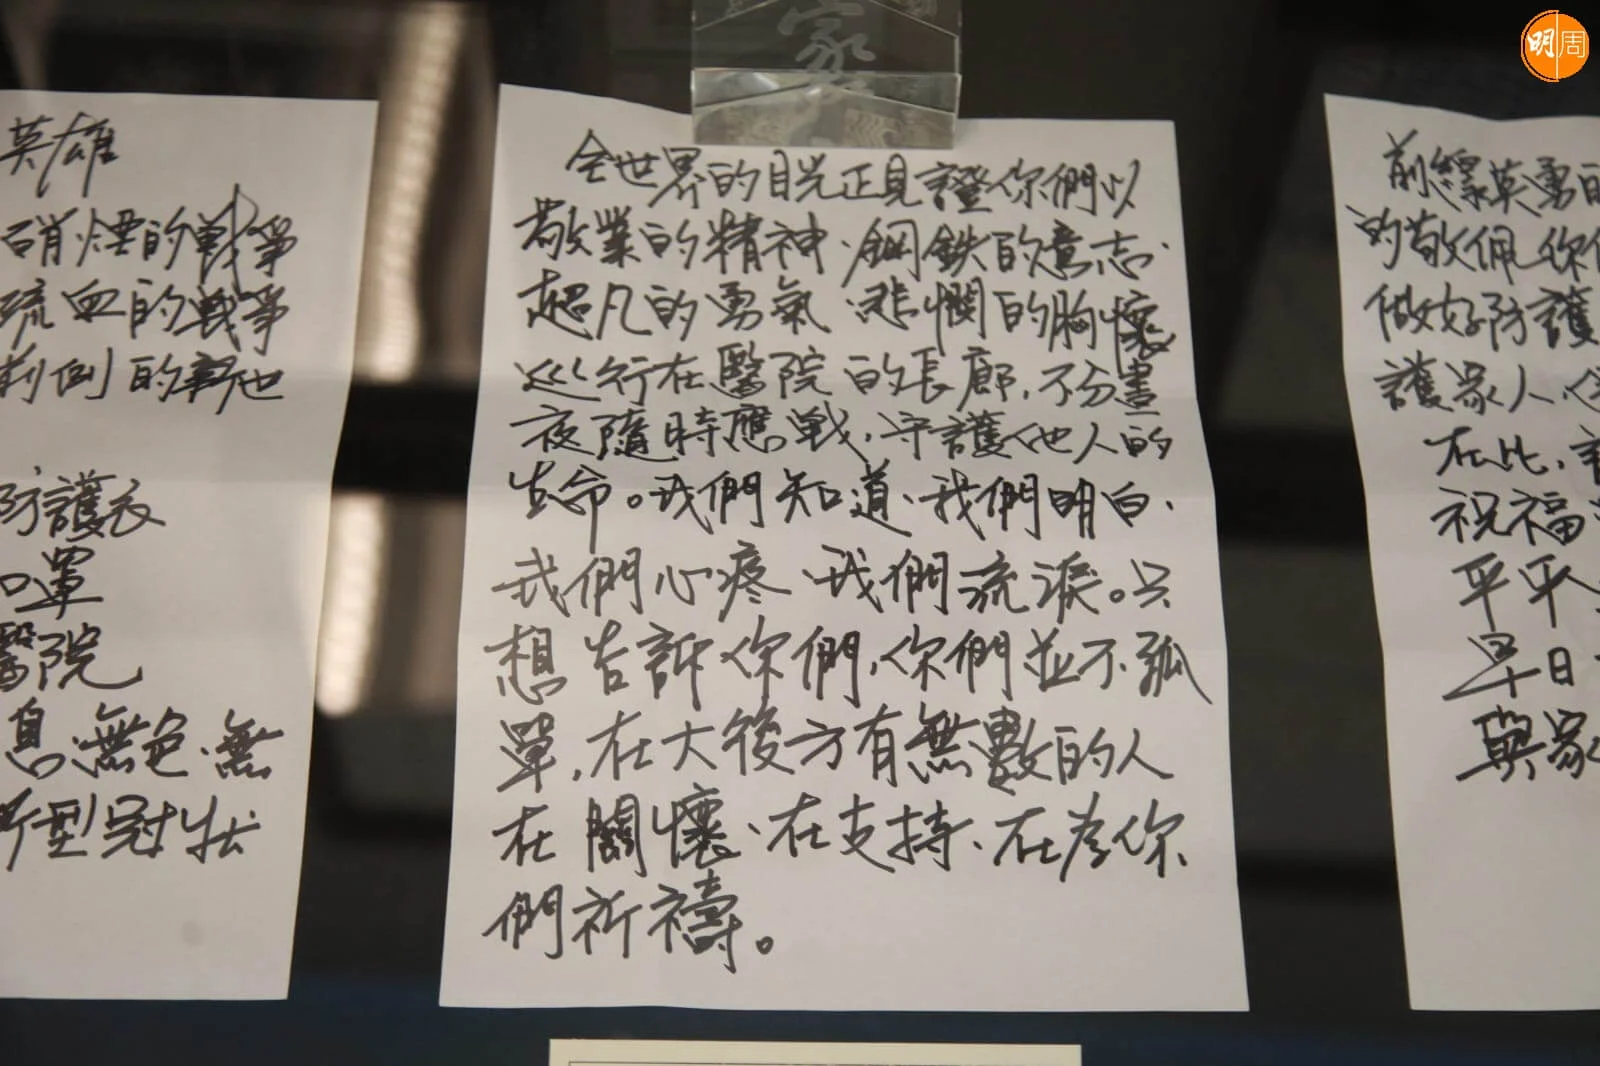 家
明周
英雄
硝煙的戰爭
流血的戰爭
刹倒的
防護衣
口罩
醫院
息、無色、無
新型冠狀
全世界的目光正見證你們以
敬業的精神、鋼鉄的意志、
超凡的勇氣、悲憫的胸懷
巡行在醫院的長廊,不分晝
夜隨時應戰,守護他人的
生命。我們知道、我們明白、
我們心疼、我們流淚。只
想告訴你們,你們並不孤
單,在大後方有無數的人
在關懷、在支持、在為你
們祈禱。
前線英勇的
的敬佩你
做好防護
護家人
在此,
祝福
平平
早日
與家